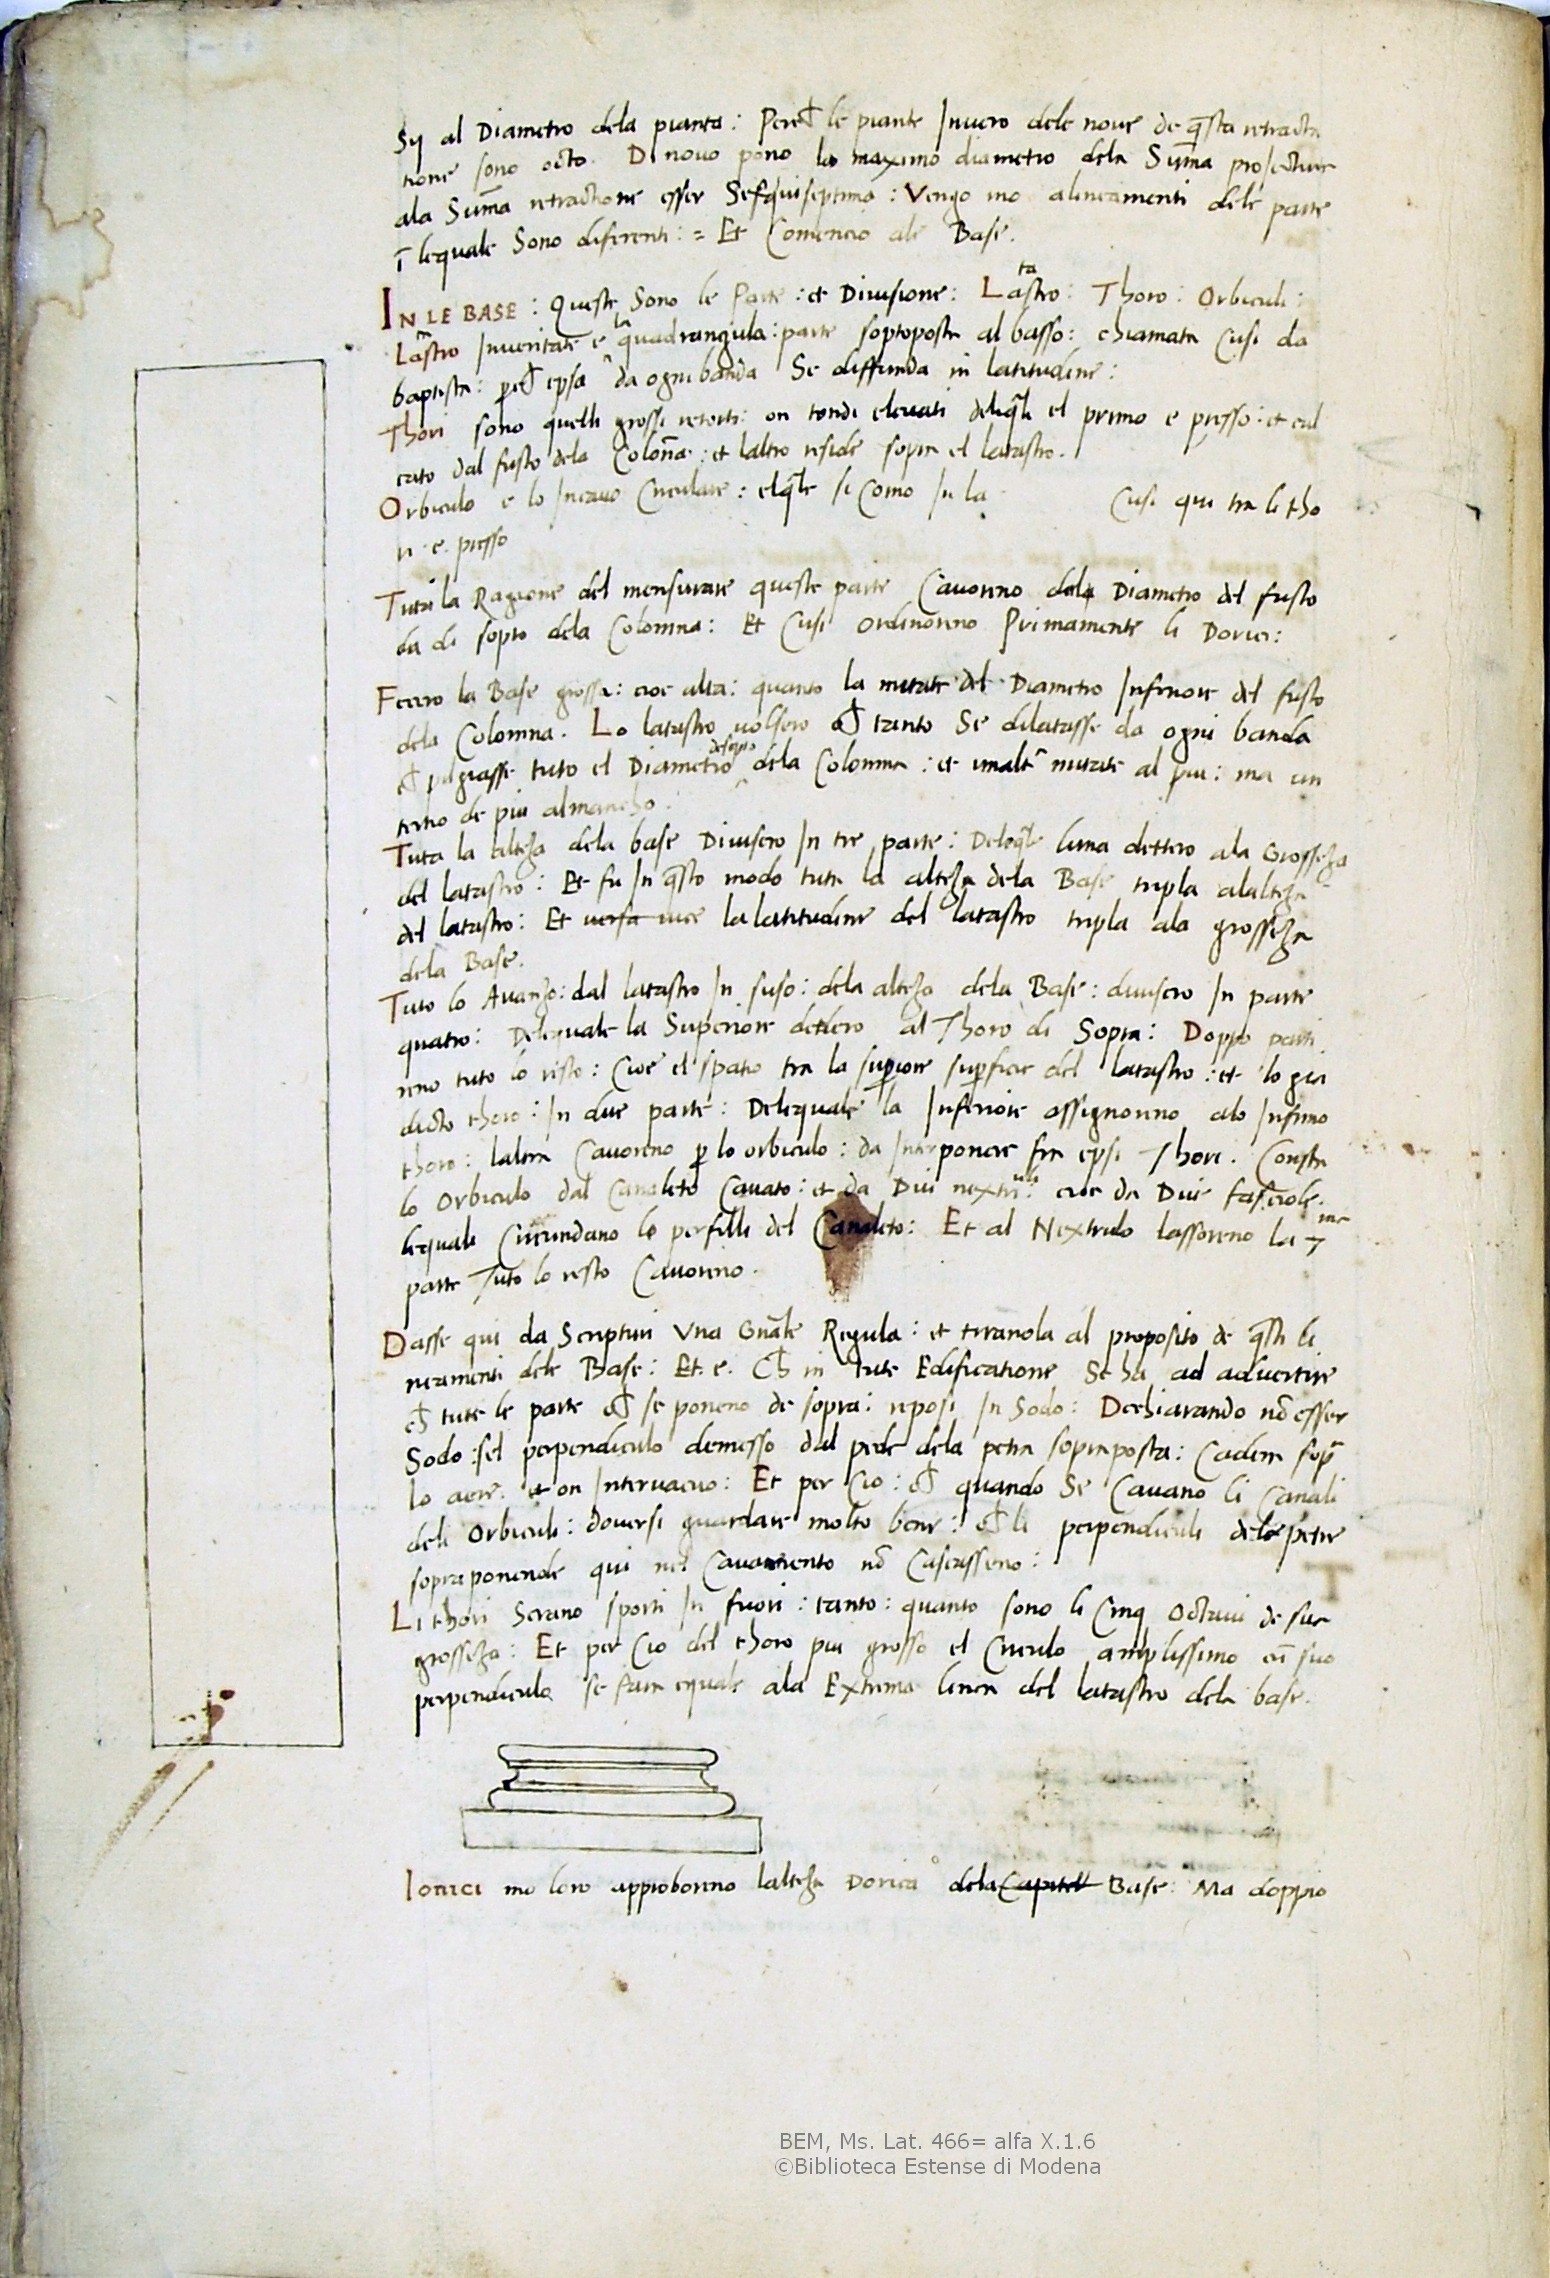 Sij al Diametro dela pianta: Perch le piante Invero dele nove de qsta retracta
tione sono octo. Di novo pono lo maximo diametro dela Suma projecture
ala Suma retractione esser Sesquiseptima: Vengo mo alineamenti dele parte
i lequale Sono diferenti: = Et Comencio ale Base.
IN LE BASE: Queste Sono le Parte: et Divisione: Latastro: Thoro: Orbiculi:
Latastro Inveritate e la quadrangula: parte soptoposta al basso: chiamata Cusi da
baptista: perch epsa da ogni banda Se diffunda in latitudine:
Thori sono quelli grossi retorti: on tondi elevati deliqli el primo e presso: et cal
cato dal fusto dela Colona: et laltro reside sopra el latastro.
Orbiculo e lo Incavo Circulare: elqle si Como In la Cusi qui tra li tho
ri e presso
Tuta la Ragione del mensurare queste parte Cavoreno dala Diametro del fusto
da di sopto dela Colomna: Et Cusi Ordinoreno Primamente li Dorici:
Fecero la Base grossa: cioe alta: quanto la mitate del Diametro Inferiore del fusto
dela Colomna. Lo latastro volsero ch tanto Se dilatasse da ogni banda
ch pigiasse tuto el Diametro desopto dela Colomna: et unalta mitate al piu: ma un
tertio de piu almancho.
Tuta la alteza dela base Divisero In tre parte: Deleqle luna dettero ala Grosseza
del latastro: Et fu In qsto modo tuta la alteza dela Base tripla alalteza
del latastro: Et versa vice la latitudine del latastro tripla ala grosseza
dela Base.
Tuto lo Avanzo: dal latastro In suso: dela alteza dela Base: divisero In parte
quatro: Delequale la Superiore dettero al Thoro di Sopra: Doppo parti
reno tuto lo resto: Cioe el spatio tra la supiore supficie del latastro: et lo gia
dicto thoro: In due parte: Delequale la Inferiore assignoreno alo Infimo
thoro: laltra Cavoreno p lo orbiculo: da Interponere fra epsi Thori. Consta
lo Orbiculo dal Canaleto Cavato: et da Dui nextruli: cioe da Due fasciole.
lequale Circundano le perfilli del Canaleto: Et al Nextrulo lassoreno la 7 ma
parte Tuto lo resto Cavoreno.
Dasse qui da Scripturi Una Gnale Regula: et tiranola al proposito de qsti li
neramenti dele Base: Et. e. Ch in tute Edificatione Se ha ad advertire
ch tute le parte ch se poneno de sopra: reposi In Sodo: Dechiarando no esser
Sodo: sel perpendiculo demesso dal pede dela petra sopraposta: Cadera sopra
lo aere. et on Intervacuo: Et per Cio: ch quando Se Cavano li Canali
deli Orbiculi: doversi guardare molto bene: ch li perpendiculi dele petre
sopraponende qui nel Cavamento no Cascasseno:
Li thori Serano sporti In fuori: tanto: quanto sono li Cinq Octavi de sue
grosseza: Et per Cio del thoro piu grosso el Circulo amplissimo cu suo
perpendiculo se fara equale ala Extrema linea del latastro dela base.
Ionici mo loro approboreno lalteza Dorica dela Capitell Base: Ma doppio
BEM, Ms. Lat. 466= alfa X.1.6
©Biblioteca Estense di Modena